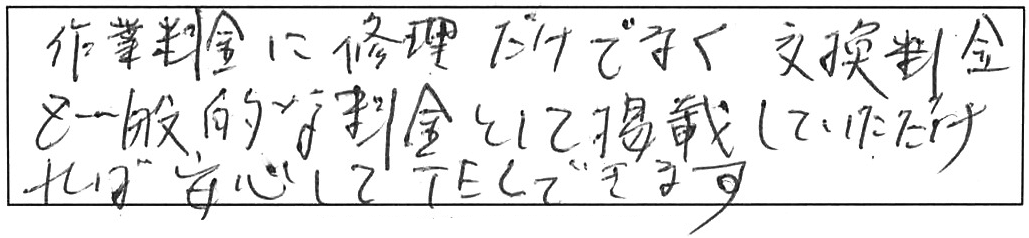 作業料金に修理だけでなく交換料金
を一般的な料金として掲載していただけ
れば安心してTELできます